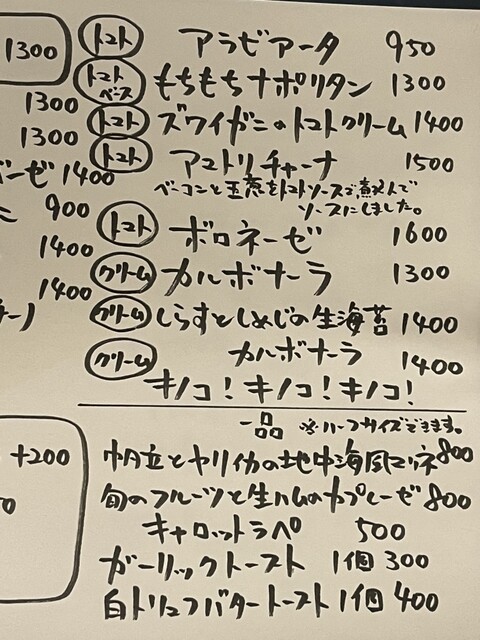 1300
1300
1300
ーゼ 1400
900
1400
1400
+200
トマト アラビアータ 950
トマトベース もちもちナポリタン 1300
トマト ズワイガニのトマトクリーム 1400
トマト アマトリチャーナ 1500
ベーコンと玉葱をトマトソースで煮込んで
ソースにしました。
トマト ボロネーゼ 1600
クリーム カルボナーラ 1300
クリーム しらすとしめじの生海苔 1400
クリーム カルボナーラ 1400
キノコ!キノコ!キノコ!
一品 ※ハーフサイズできます。
帆立とヤリイカの地中海風マリネ 800
旬のフルーツと生ハムのカプレーゼ 800
キャロットラペ 500
ガーリックトースト 1個 300
白トリュフバタートースト 1個 400